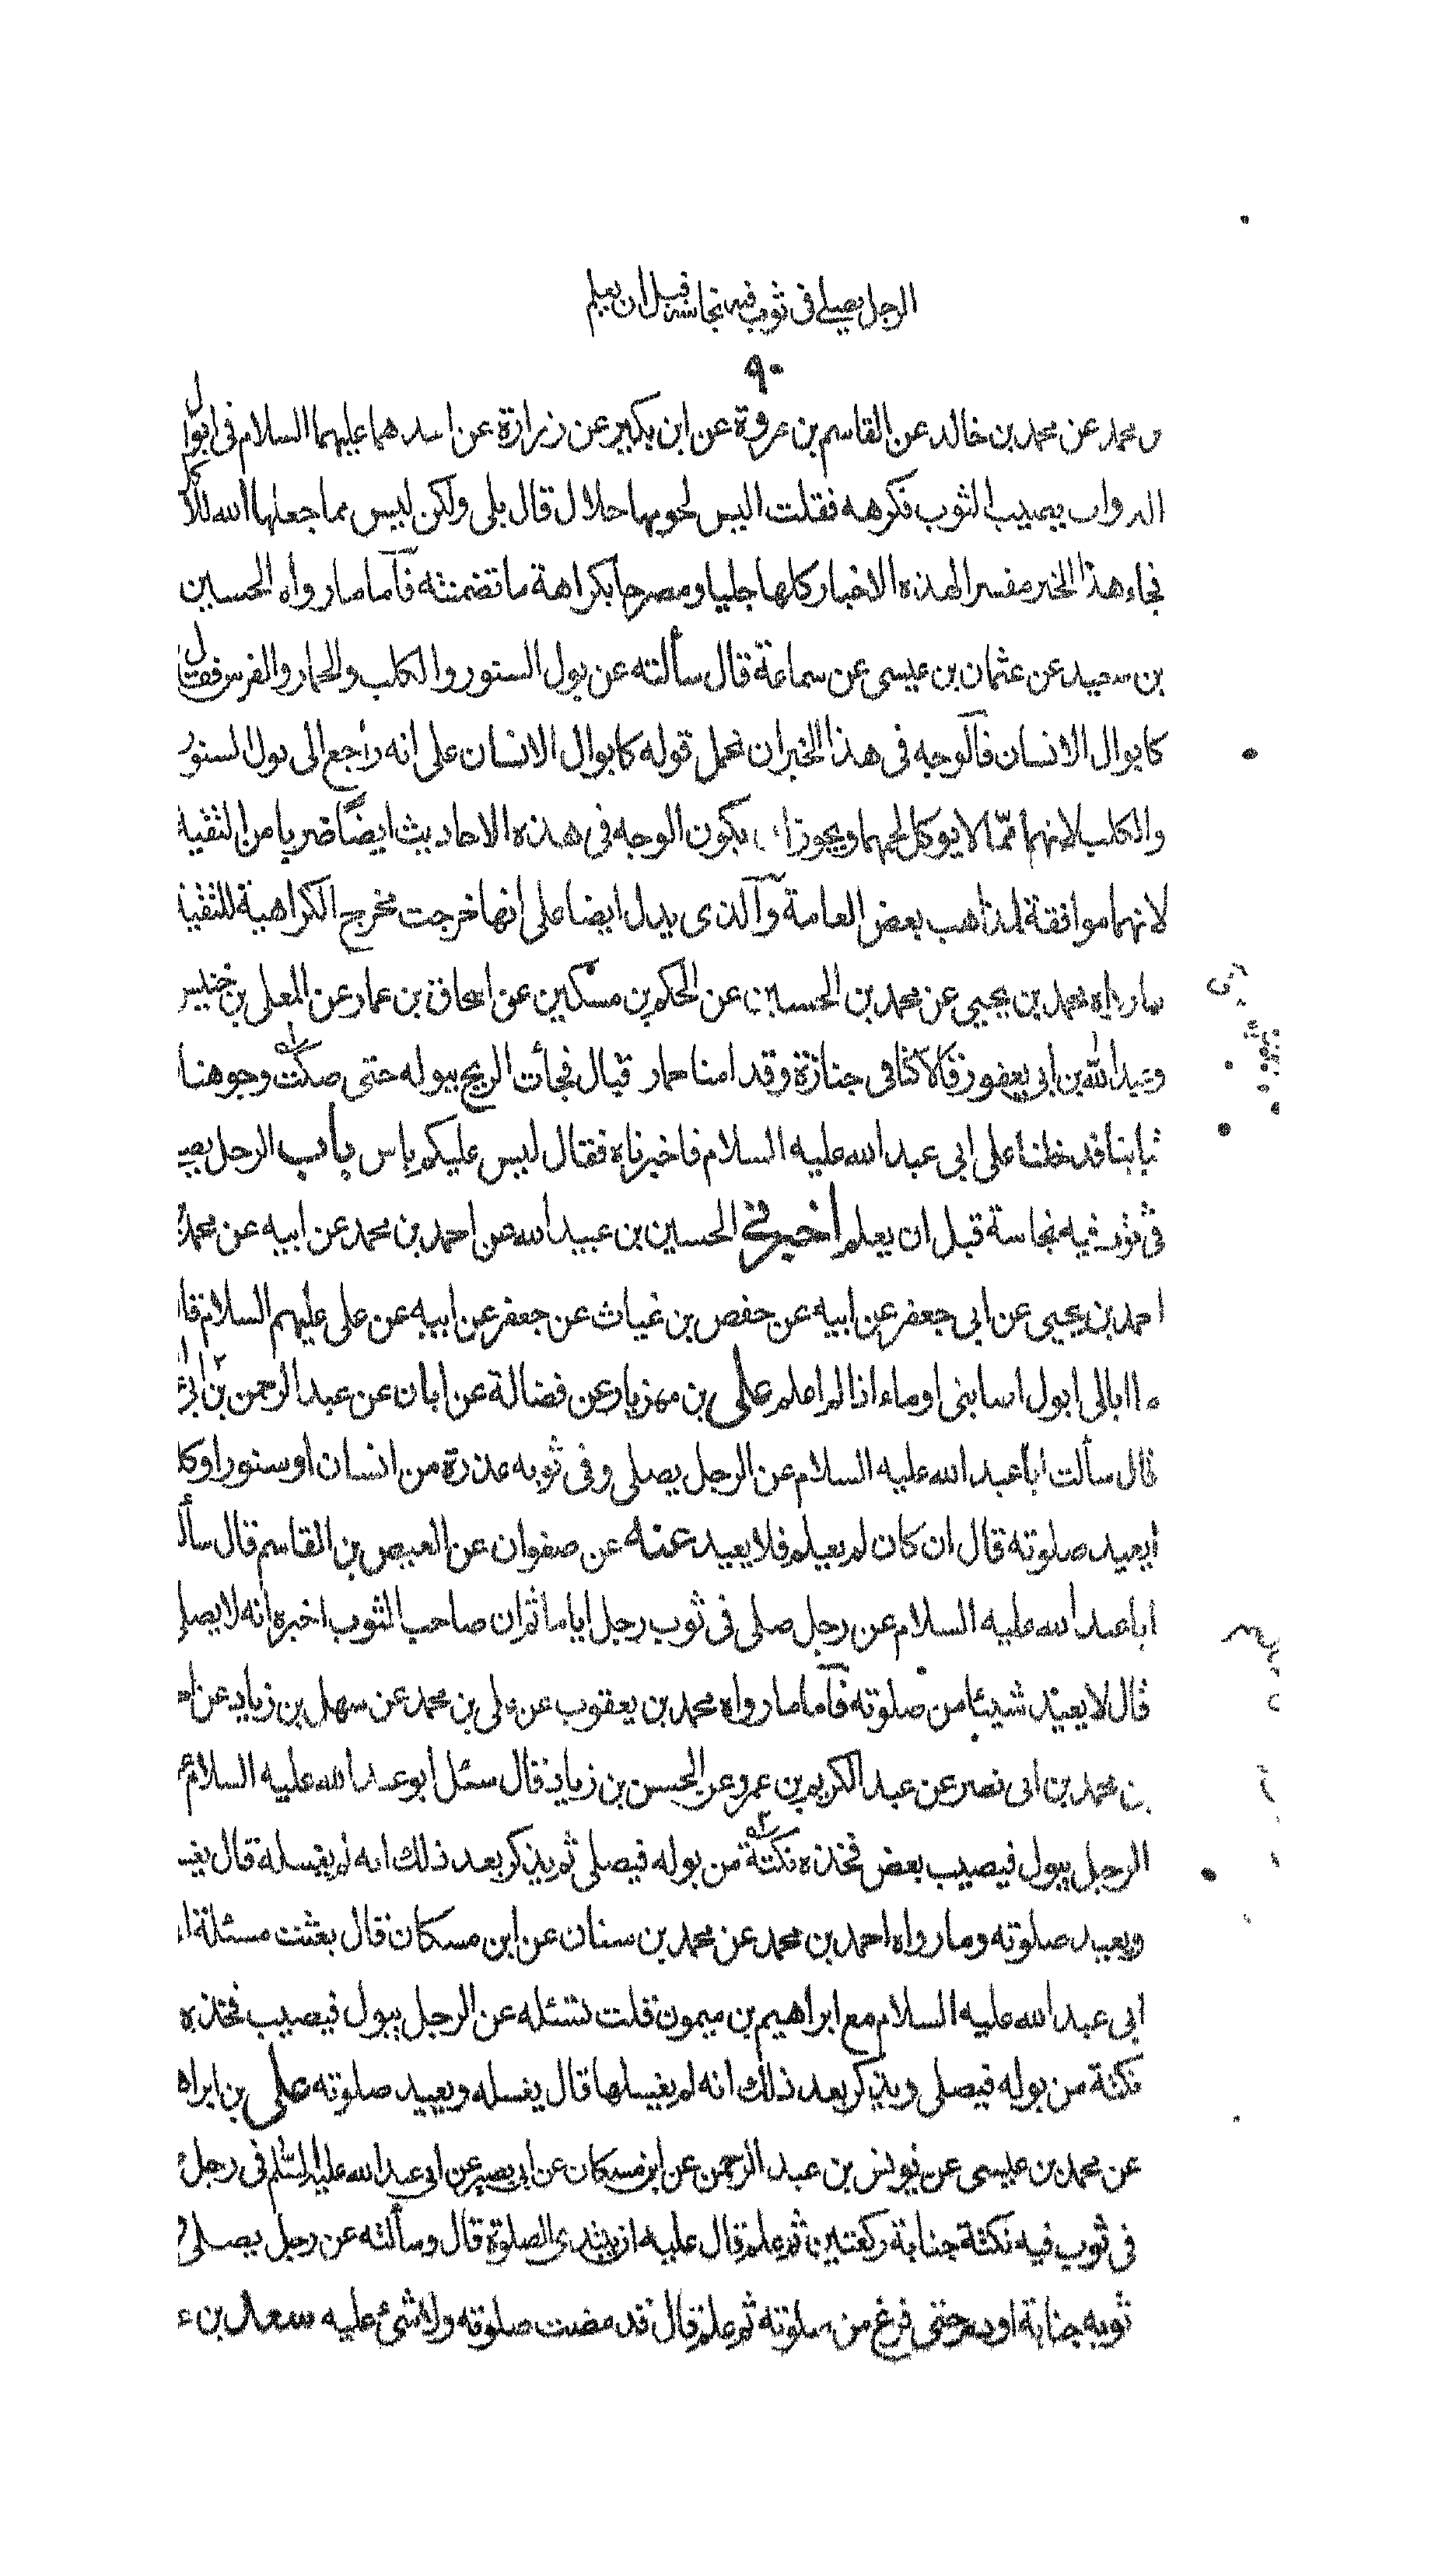 الرجل يصلى فى ثوب فيه نجاسة قبل ان يعلم
٩٠
محمد عن محمد بن خالد عن القاسم بن عروة عن ابن بكير عن زرارة عن احدهما عليهما السلام فى ابوال
الدواب يصيب الثوب فكرهه فقلت اليس لحومها حلال قال بلى ولكن ليس مما جعلها الله للاكل
فجاء هذا الخبر مفسرا لهذه الاخبار كلها جليا ومصرحا بكراهة ما تضمنته فآما ما رواه الحسين
بن سعيد عن عثمان بن عيسى عن سماعة قال سألته عن بول السنور والكلب والحمار والفرس فقال
كابوال الانسان فآلوجه فى هذا الخبر ان نحمل قوله كابوال الانسان على انه راجع الى بول السنور
والكلب لانهما ممّا لا يوكل لحمهما ويجوز ان يكون الوجه فى هذه الاحاديث ايضًا ضربا من التقية
لانهما موافقة لمذاهب بعض العامة وآلذى يدل ايضا على انها خرجت مخرج الكراهية للتقية
ما رواه محمد بن يحيى عن محمد بن الحسين عن الحكم بن مسكين عن اسحاق بن عمار عن المعلى بن خنيس
وعبد الله بن ابى يعفور قالا كنا فى جنازة وقد امنا حمار قبال فجأت الريح ببوله حتى صكت وجوهنا
ثيابنا فدخلنا على ابى عبد الله عليه السلام فاخبرناه فقال ليس عليكم باس باب الرجل يصـ
فى ثوب فيه نجاسة قبل ان يعلم اخبرنى الحسين بن عبيد الله عن احمد بن محمد عن ابيه عن محمد
احمد بن يحيى عن ابى جعفر عن ابيه عن حفص بن غياث عن جعفر عن ابيه عن على عليهم السلام قا
ما ابالى ابول اصابنى او ماء اذا لم اعلم على بن مهزيار عن فضالة عن ابان عن عبد الرحمن بن ابى
قال سألت ابا عبد الله عليه السلام عن الرجل يصلى وفى ثوبه عذرة من انسان او سنور او كلـ
ايعيد صلوته قال ان كان لم يعلم فلا يعيد عنه عن صفوان عن العيص بن القاسم قال سألـ
ابا عبد الله عليه السلام عن رجل صلى فى ثوب رجل اياما ثم ان صاحب الثوب اخبره انه لا يصلى
قال لا يعيد شيئا من صلوته فآما ما رواه محمد بن يعقوب عن على بن محمد عن سهل بن زياد عن
بن محمد بن ابى نصر عن عبد الكريم بن عمرو عن الحسن بن زياد قال سئل ابو عبد الله عليه السلام
الرجل يبول فيصيب بعض فخذه نكتة من بوله فيصلى ثم يذكر بعد ذلك انه لم يغسله قال يغسـ
ويعيد صلوته وما رواه احمد بن محمد عن محمد بن سنان عن ابن مسكان قال بعثت مسئلة
ابى عبد الله عليه السلام مع ابراهيم بن ميمون قلت تسئله عن الرجل يبول فيصيب فخذه
نكتة من بوله فيصلى ويذكر بعد ذلك انه لم يغسلها قال يغسله ويعيد صلوته على بن ابراه
عن محمد بن عيسى عن يونس بن عبد الرحمن عن ابن مسكان عن ابى بصير عن ابى عبد الله عليه السلم فى رجل
فى ثوب فيه نكتة جنابة ركعتين ثم علم قال عليه ان يبتدى الصلوة قال وسألته عن رجل يصلى
ثوبه جنابة او دم حتى فرغ من صلوته ثم علم قال قد مضت صلوته ولا شئ عليه سعد بن